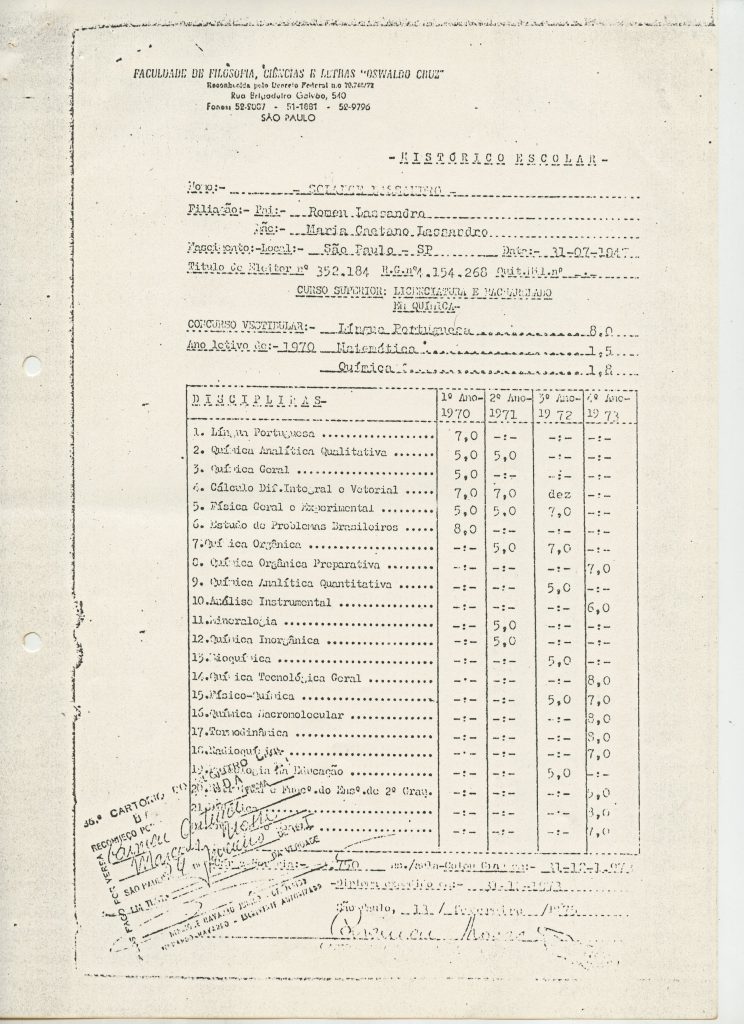 FACULDADE DE FILOSOFIA, CIÊNCIAS E LETRAS "OSWALDO CRUZ"
Reconhecida pelo Decreto Federal n.o
Rua Brigadeiro Galvão, 540
Fones: 52-2067 - 51-1681 - 52-9796
SÃO PAULO
- HISTÓRICO ESCOLAR -
Nome:-
Filiação:- Pai:- Romeu Lassandro
Mãe:- Maria Caetano Lassandro
Nascimento:-Local:- São Paulo - SP Data:- 31-07-1947
Titulo de Eleitor nº 352.184 R.G.nº4.154.268 Quit.Mil.nº -.-
CURSO SUPERIOR: LICENCIATURA E BACHARELADO
EM QUÍMICA-
CONCURSO VESTIBULAR:- Língua Portuguesa .................. 8,0
Ano letivo de:- 1970 Matemática .................. 1,5
Química .................. 1,8
DISCIPLINAS- 1º Ano- 2º Ano- 3º Ano- 4º Ano-
1970 1971 19 72 19 73
1. Língua Portuguesa ................ 7,0 -:- -:- -:-
2. Química Analítica Qualitativa ...... 5,0 5,0 -:- -:-
3. Química Geral .................... 5,0 -:- -:-
4. Cálculo Dif.Integral e Vetorial ..... 7,0 7,0 dez -:-
5. Física Geral e Experimental ........ 5,0 5,0 7,0 -:-
6. Estudo de Problemas Brasileiros ..... 8,0 -:- -:- -:-
7.Química Orgânica .................. -:- 5,0 7,0 -:-
8. Química Orgânica Preparativa ....... -:- -:- -:- 7,0
9. Química Analítica Quantitativa ...... -:- -:- 5,0 -:-
10.Análise Instrumental .............. -:- -:- -:- 6,0
11.Mineralogia ...................... -:- 5,0 -:- -:-
12.Química Inorgânica ................ -:- 5,0 -:- -:-
13.Bioquímica ....................... -:- -:- 5,0 -:-
14.Química Tecnológica Geral .......... -:- -:- -:- 8,0
15.Físico-Química ................... -:- -:- 5,0 7,0
16.Química Macromolecular ............ -:- -:- -:- 8,0
17.Termodinâmica .................... -:- -:- -:- 8,0
18.Radioquímica ..................... -:- -:- -:- 7,0
da Educação ............ -:- -:- 5,0 -:-
e Func.do Ens.de 2º Grau. -:- -:- -:- 5,0
-:- -:- -:- 8,0
-:- -:- -:- 7,0
São Paulo, 11 / fevereiro /
CARTORIO
RECONHEÇO
SÃO PAULO
DA VERDADE